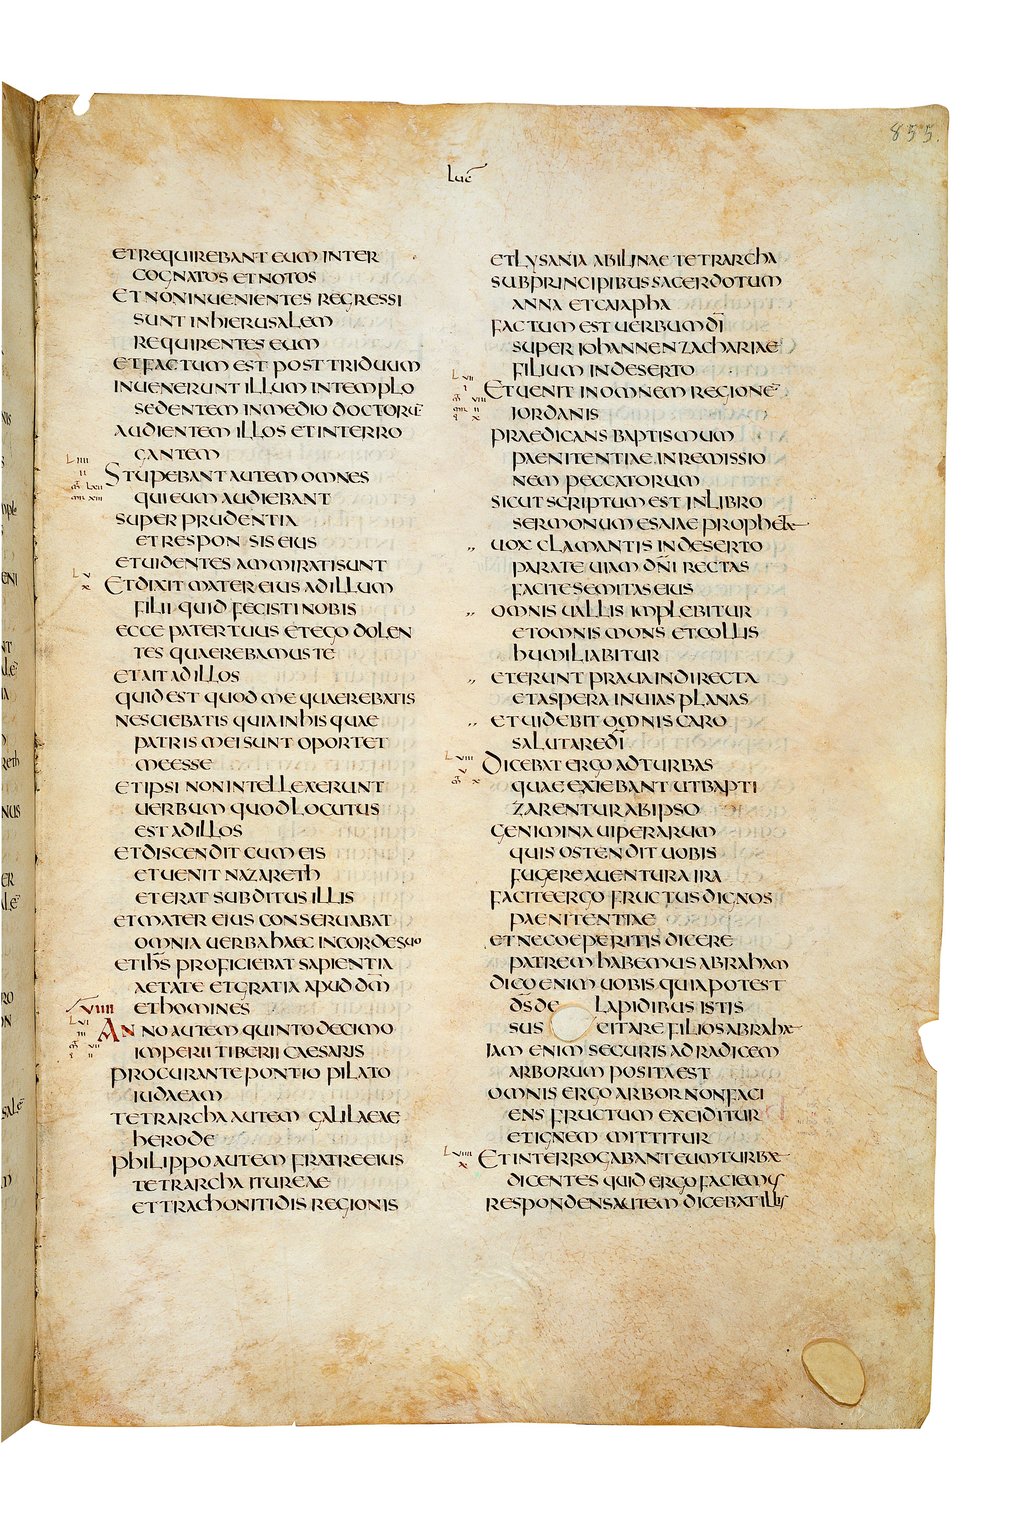 855.
Luc̄
ET REQUIREBANT EUM INTER
COGNATOS ET NOTOS
ET NON INUENIENTES REGRESSI
SUNT IN HIERUSALEM
REQUIRENTES EUM
ET FACTUM EST POST TRIDUUM
INUENERUNT ILLUM IN TEMPLO
SEDENTEM IN MEDIO DOCTORŪ
AUDIENTEM ILLOS ET INTERRO
GANTEM
STUPEBANT AUTEM OMNES
QUI EUM AUDIEBANT
SUPER PRUDENTIA
ET RESPONSIS EIUS
ET UIDENTES AMMIRATI SUNT
ET DIXIT MATER EIUS AD ILLUM
FILII QUID FECISTI NOBIS
ECCE PATER TUUS ET EGO DOLEN
TES QUAEREBAMUS TE
ET AIT AD ILLOS
QUID EST QUOD ME QUAEREBATIS
NESCIEBATIS QUIA IN HIS QUAE
PATRIS MEI SUNT OPORTET
ME ESSE
ET IPSI NON INTELLEXERUNT
UERBUM QUOD LOCUTUS
EST AD ILLOS
ET DISCENDIT CUM EIS
ET UENIT NAZARETH
ET ERAT SUBDITUS ILLIS
ET MATER EIUS CONSERUABAT
OMNIA UERBA HAEC IN CORDE SUO
ET IHS̄ PROFICIEBAT SAPIENTIA
AETATE ET GRATIA APUD DM̄
VIIII ET HOMINES
ANNO AUTEM QUINTO DECIMO
IMPERII TIBERII CAESARIS
PROCURANTE PONTIO PILATO
IUDAEAM
TETRARCHA AUTEM GALILAEAE
HERODE
PHILIPPO AUTEM FRATRE EIUS
TETRARCHA ITUREAE
ET TRACHONITIDIS REGIONIS
ET LYSANIA ABILINAE TETRARCHA
SUB PRINCIPIBUS SACERDOTUM
ANNA ET CAIAPHA
FACTUM EST UERBUM DĪ
SUPER IOHANNEN ZACHARIAE
FILIUM IN DESERTO
ET UENIT IN OMNEM REGIONĒ
IORDANIS
PRAEDICANS BAPTISMUM
PAENITENTIAE IN REMISSIO
NEM PECCATORUM
SICUT SCRIPTUM EST IN LIBRO
SERMONUM ESAIAE PROPHETAE
UOX CLAMANTIS IN DESERTO
PARATE UIAM DN̄I RECTAS
FACITE SEMITAS EIUS
OMNIS UALLIS IMPLEBITUR
ET OMNIS MONS ET COLLIS
HUMILIABITUR
ET ERUNT PRAUA IN DIRECTA
ET ASPERA IN UIAS PLANAS
ET UIDEBIT OMNIS CARO
SALUTARE DĪ
DICEBAT ERGO AD TURBAS
QUAE EXIEBANT UT BAPTI
ZARENTUR AB IPSO
GENIMINA UIPERARUM
QUIS OSTENDIT UOBIS
FUGERE A UENTURA IRA
FACITE ERGO FRUCTUS DIGNOS
PAENITENTIAE
ET NE COEPERITIS DICERE
PATREM HABEMUS ABRAHAM
DICO ENIM UOBIS QUIA POTEST
DS̄ DE LAPIDIBUS ISTIS
SUSCITARE FILIOS ABRAHAE
IAM ENIM SECURIS AD RADICEM
ARBORUM POSITA EST
OMNIS ERGO ARBOR NON FACI
ENS FRUCTUM EXCIDITUR
ET IGNEM MITTITUR
ET INTERROGABANT EUM TURBAE
DICENTES QUID ERGO FACIEMUS
RESPONDENS AUTEM DICEBAT ILLIS